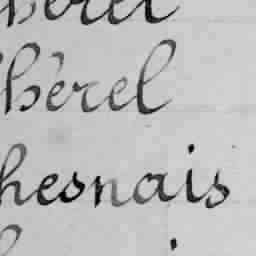 hérel
hérel
hesnais